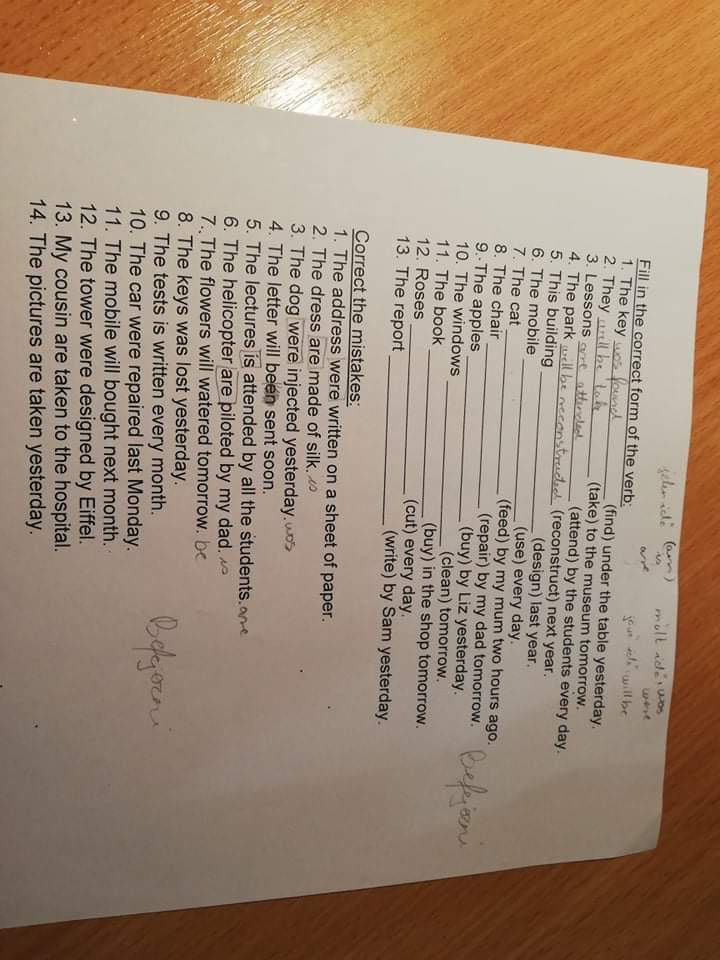 jelen idő (am) múlt idő: was
is were
are jövő idő: will be
Fill in the correct form of the verb:
1. The key was found (find) under the table yesterday.
2. They will be take (take) to the museum tomorrow.
3. Lessons are attended (attend) by the students every day.
4. The park will be reconstructed (reconstruct) next year.
5. This building ____ (design) last year.
6. The mobile ____ (use) every day.
7. The cat ____ (feed) by my mum two hours ago.
8. The chair ____ (repair) by my dad tomorrow.
9. The apples ____ (buy) by Liz yesterday.
10. The windows ____ (clean) tomorrow.
11. The book ____ (buy) in the shop tomorrow.
12. Roses ____ (cut) every day.
13. The report ____ (write) by Sam yesterday.
Befejezni
Correct the mistakes:
1. The address were written on a sheet of paper.
2. The dress are made of silk. is
3. The dog were injected yesterday. was
4. The letter will been sent soon.
5. The lectures is attended by all the students. are
6. The helicopter are piloted by my dad. is
7. The flowers will watered tomorrow. be
8. The keys was lost yesterday.
9. The tests is written every month.
Befejezni
10. The car were repaired last Monday.
11. The mobile will bought next month.
12. The tower were designed by Eiffel.
13. My cousin are taken to the hospital.
14. The pictures are taken yesterday.